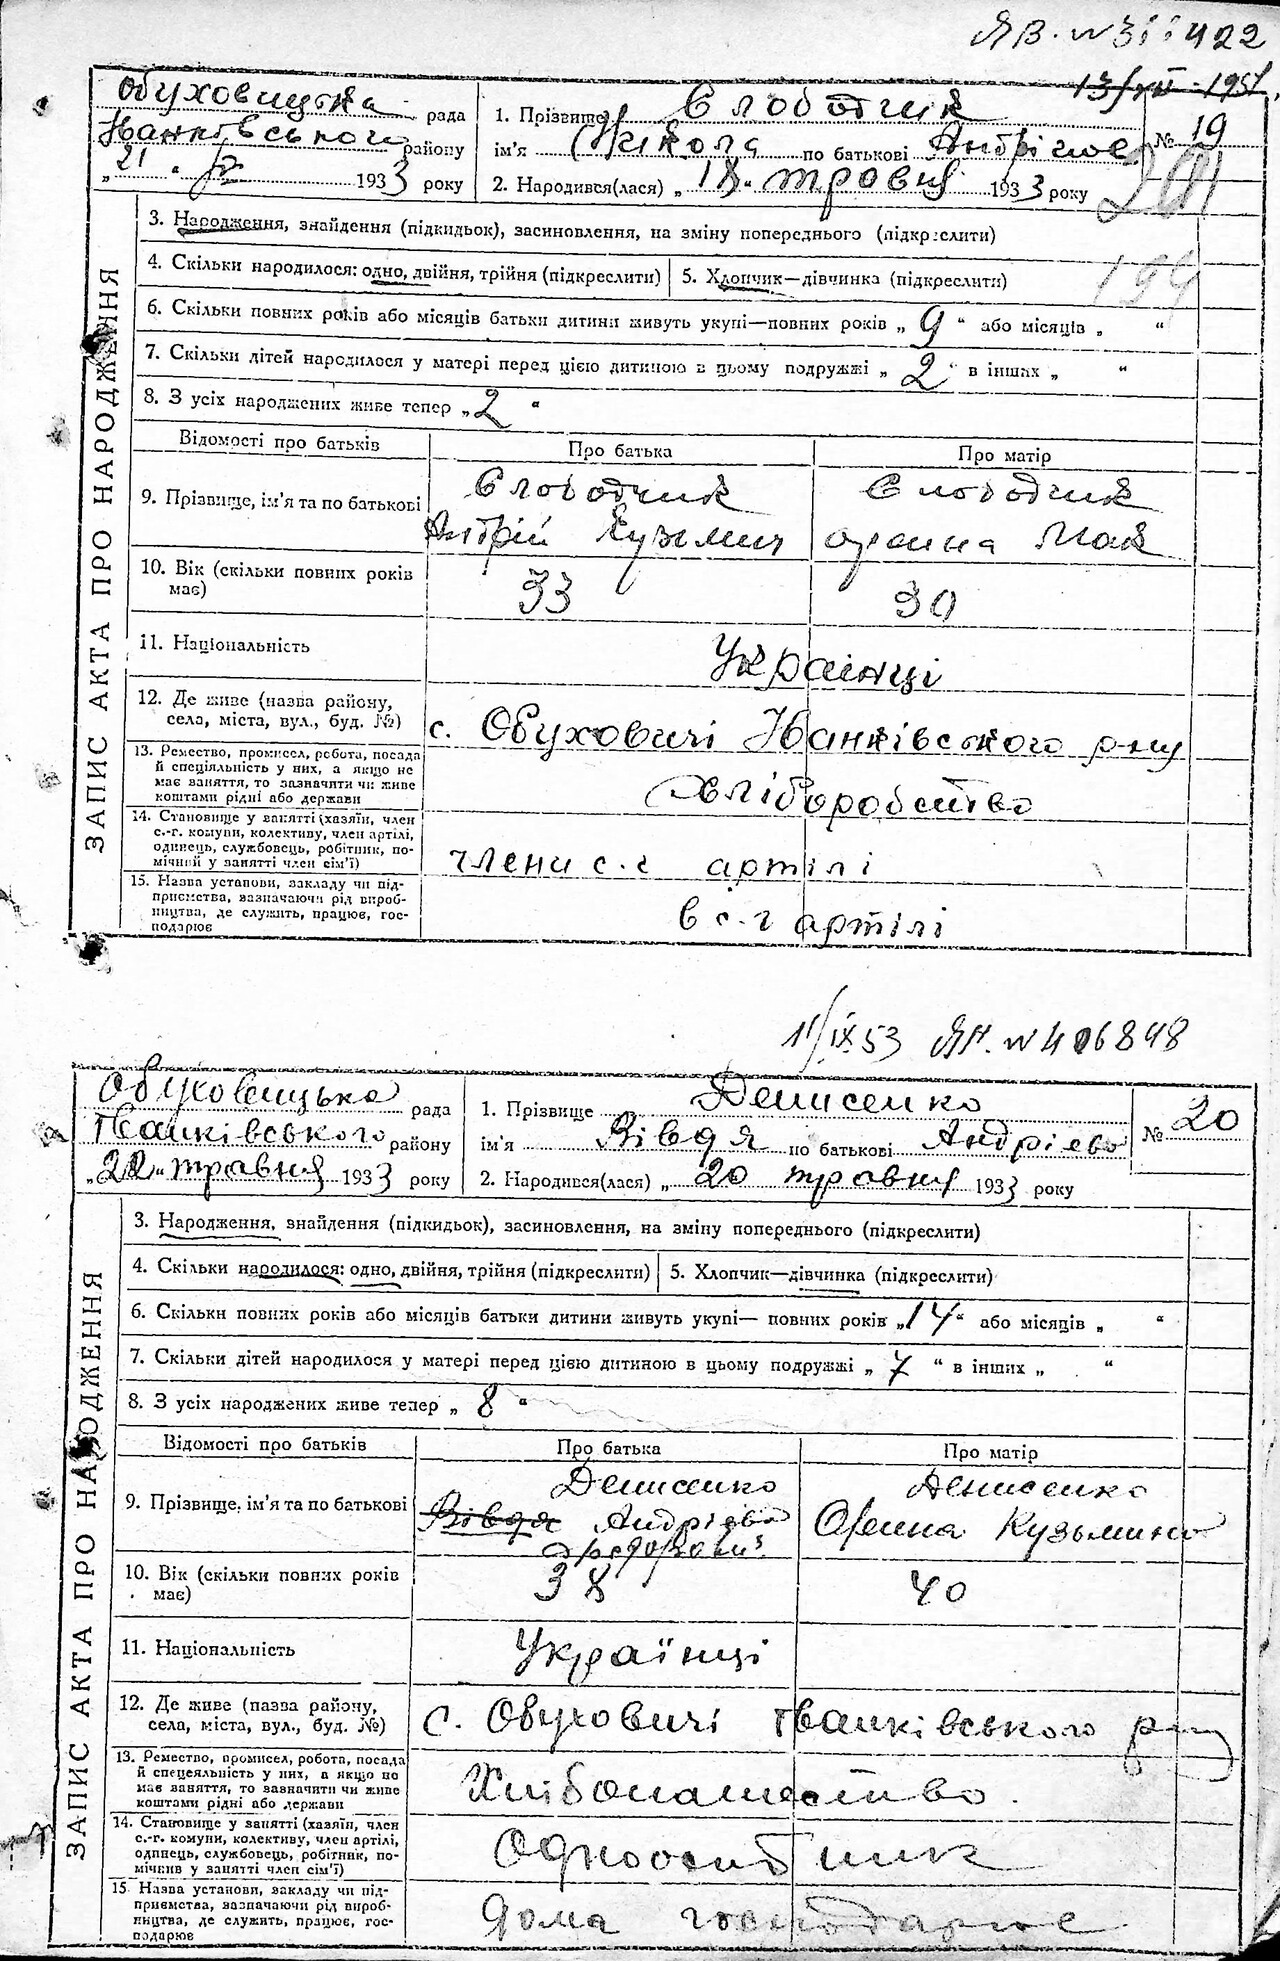 ЯВ. № 311422
13/VII - 1951
Обуховицька рада
Іванківського району
„21 “ V 1933 року
1. Прізвище Слободчик
ім'я Микола по батькові Андрієве
2. Народився(лася) „ 18 “ травня 1933 року
№ 19
201
194
ЗАПИС АКТА ПРО НАРОДЖЕННЯ
3. Народження, знайдення (підкидьок), засиновлення, на зміну попереднього (підкреслити)
4. Скільки народилося: одно, двійня, трійня (підкреслити)
5. Хлопчик—дівчинка (підкреслити)
6. Скільки повних років або місяців батьки дитини живуть укупі—повних років „ 9 “ або місяців „ “
7. Скільки дітей народилося у матері перед цією дитиною в цьому подружжі „ 2 “ в інших „ “
8. З усіх народжених живе тепер „ 2 “
Відомості про батьків
Про батька
Про матір
9. Прізвище, ім'я та по батькові
Слободчик
Андрій Кузьмич
Слободчик
Орина Мак
10. Вік (скільки повних років
має)
33
30
11. Національність
Українці
12. Де живе (назва району,
села, міста, вул., буд. №)
с. Обуховичі Іванківського р-ну
13. Ремество, промисел, робота, посада
й спеціяльність у них, а якщо не
має заняття, то зазначити чи живе
коштами рідні або держави
Хліборобство
14. Становище у занятті (хазяїн, член
с.-г. комуни, колективу, член артілі,
одинець, службовець, робітник, по-
мічний у занятті член сім'ї)
члени с.г артілі
15. Назва установи, закладу чи під-
приємства, зазначаючи рід вироб-
ництва, де служить, працює, гос-
подарює
в с.-г артілі
11/IX 53 ЯН. № 406848
Обуховицька рада
Іванківського району
„22 “ травня 1933 року
1. Прізвище Денисенко
ім'я Вівдя по батькові Андрієва
2. Народився(лася) „ 20 травня 1933 року
№ 20
ЗАПИС АКТА ПРО НАРОДЖЕННЯ
3. Народження, знайдення (підкидьок), засиновлення, на зміну попереднього (підкреслити)
4. Скільки народилося: одно, двійня, трійня (підкреслити)
5. Хлопчик—дівчинка (підкреслити)
6. Скільки повних років або місяців батьки дитини живуть укупі— повних років „ 14 “ або місяців „ “
7. Скільки дітей народилося у матері перед цією дитиною в цьому подружжі „ 7 “ в інших „ “
8. З усіх народжених живе тепер „ 8 “
Відомості про батьків
Про батька
Про матір
9. Прізвище, ім'я та по батькові
Денисенко
Вівдя Андрієва
Денисенко
Орина Кузьмина
10. Вік (скільки повних років
має)
38
40
11. Національність
Українці
12. Де живе (назва району,
села, міста, вул., буд. №)
с. Обуховичі Іванківського р-ну
13. Ремество, промисел, робота, посада
й спецеяльність у них, а якщо не
має заняття, то зазначити чи живе
коштами рідні або держави
Хлібопашество.
14. Становище у занятті (хазяїн, член
с.-г. комуни, колективу, член артілі,
одинець, службовець, робітник, по-
мічник у занятті член сім'ї)
Одноосибник
15. Назва установи, закладу чи під-
приємства, зазначаючи рід вироб-
ництва, де служить, працює, гос-
подарює
Дома господарює